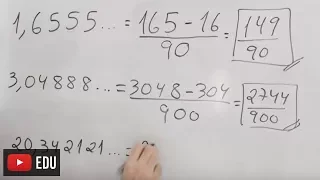 1,6555... = 165 - 16 / 90 = 149 / 90
3,04888... = 3048 - 304 / 900 = 2744 / 900
20,342121... =
EDU